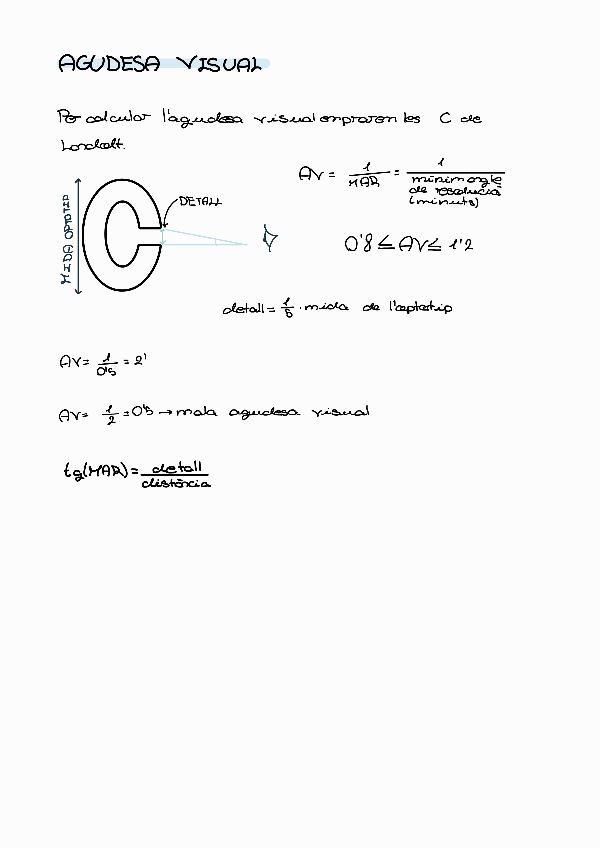 AGUDESA VISUAL
Per calcular l'agudesa visual emprarem les C de
Landolt.
AV = 1/MAR = 1/mínim angle de resolució (minuts)
MIDA OPTOTIP
DETALL
0'8 ≤ AV ≤ 1'2
detall = 1/5 · mida de l'optotip
AV = 1/0'5 = 2'
AV = 1/2 = 0'5 → mala agudesa visual
tg(MAR) = detall/distància